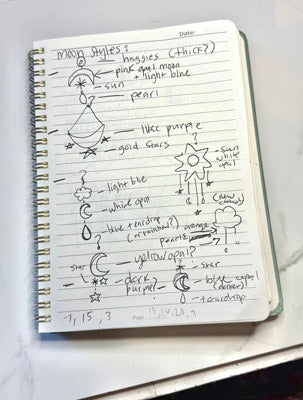 Date:
moon styles:
huggies (thick?)
pink opal moon
+ light blue
sun
pearl
like purple
gold stars
?
sun
white
opal
?
light blue
white opal
(new
blue teardrop
(or rainbow?)
orange
pearls
?
yellow opal?
?
star
star
dark
purple
blue opal
(darker)
teardrop
7, 15, 3
Page